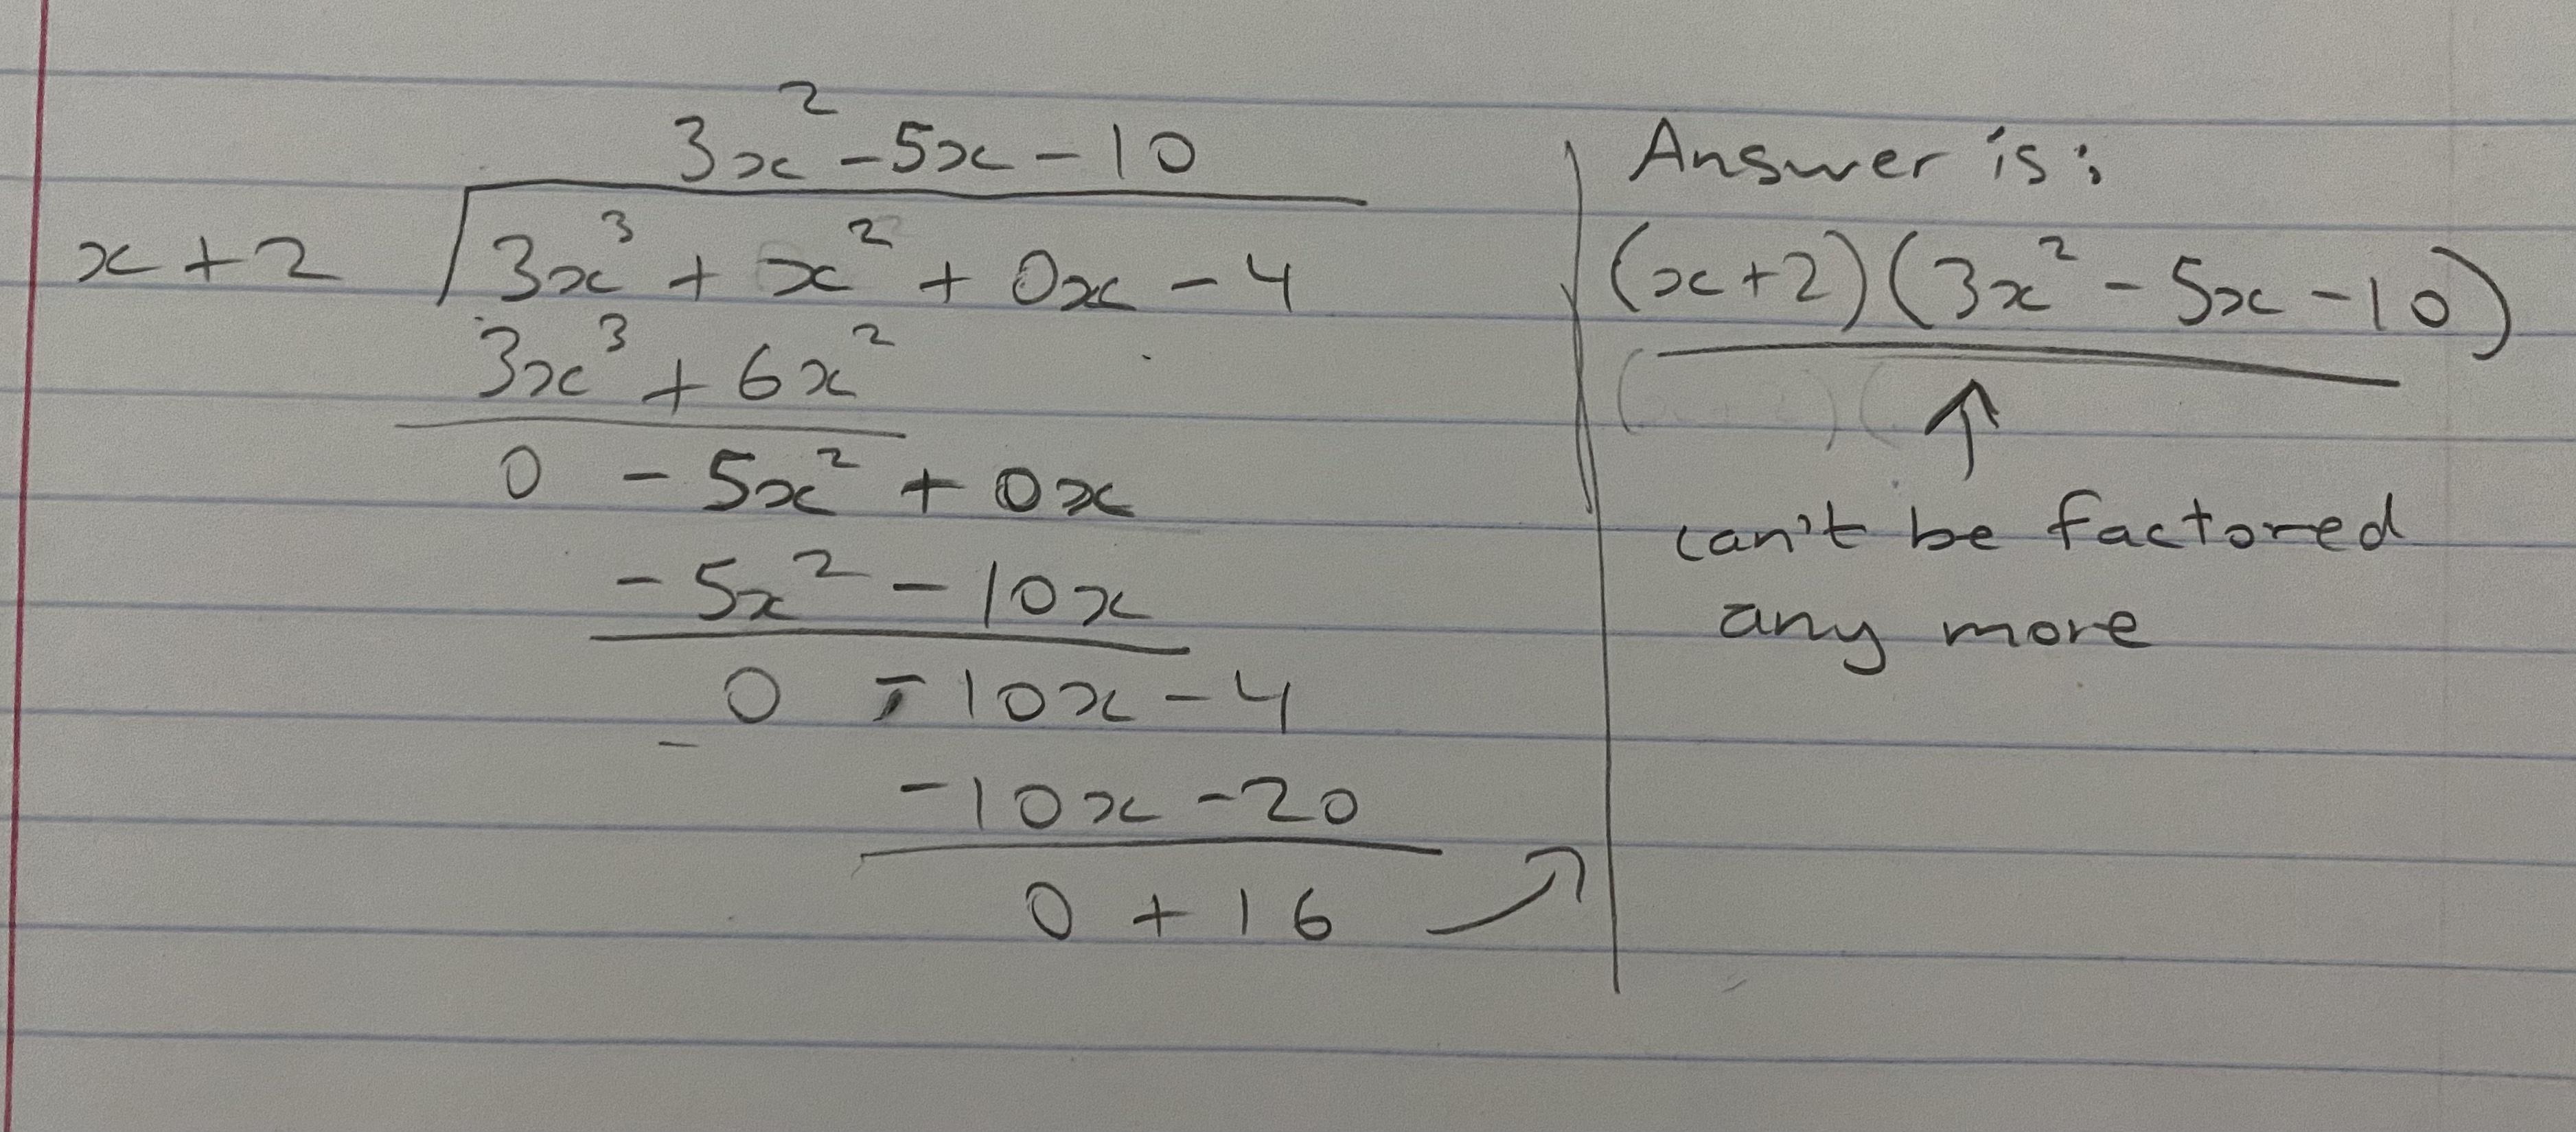 3x² - 5x - 10
x + 2 3x³ + x² + 0x - 4
3x³ + 6x²
0 - 5x² + 0x
- 5x² - 10x
0 - 10x - 4
-10x - 20
0 + 16
Answer is:
(x+2)(3x² - 5x - 10)
↑
can't be factored
any more